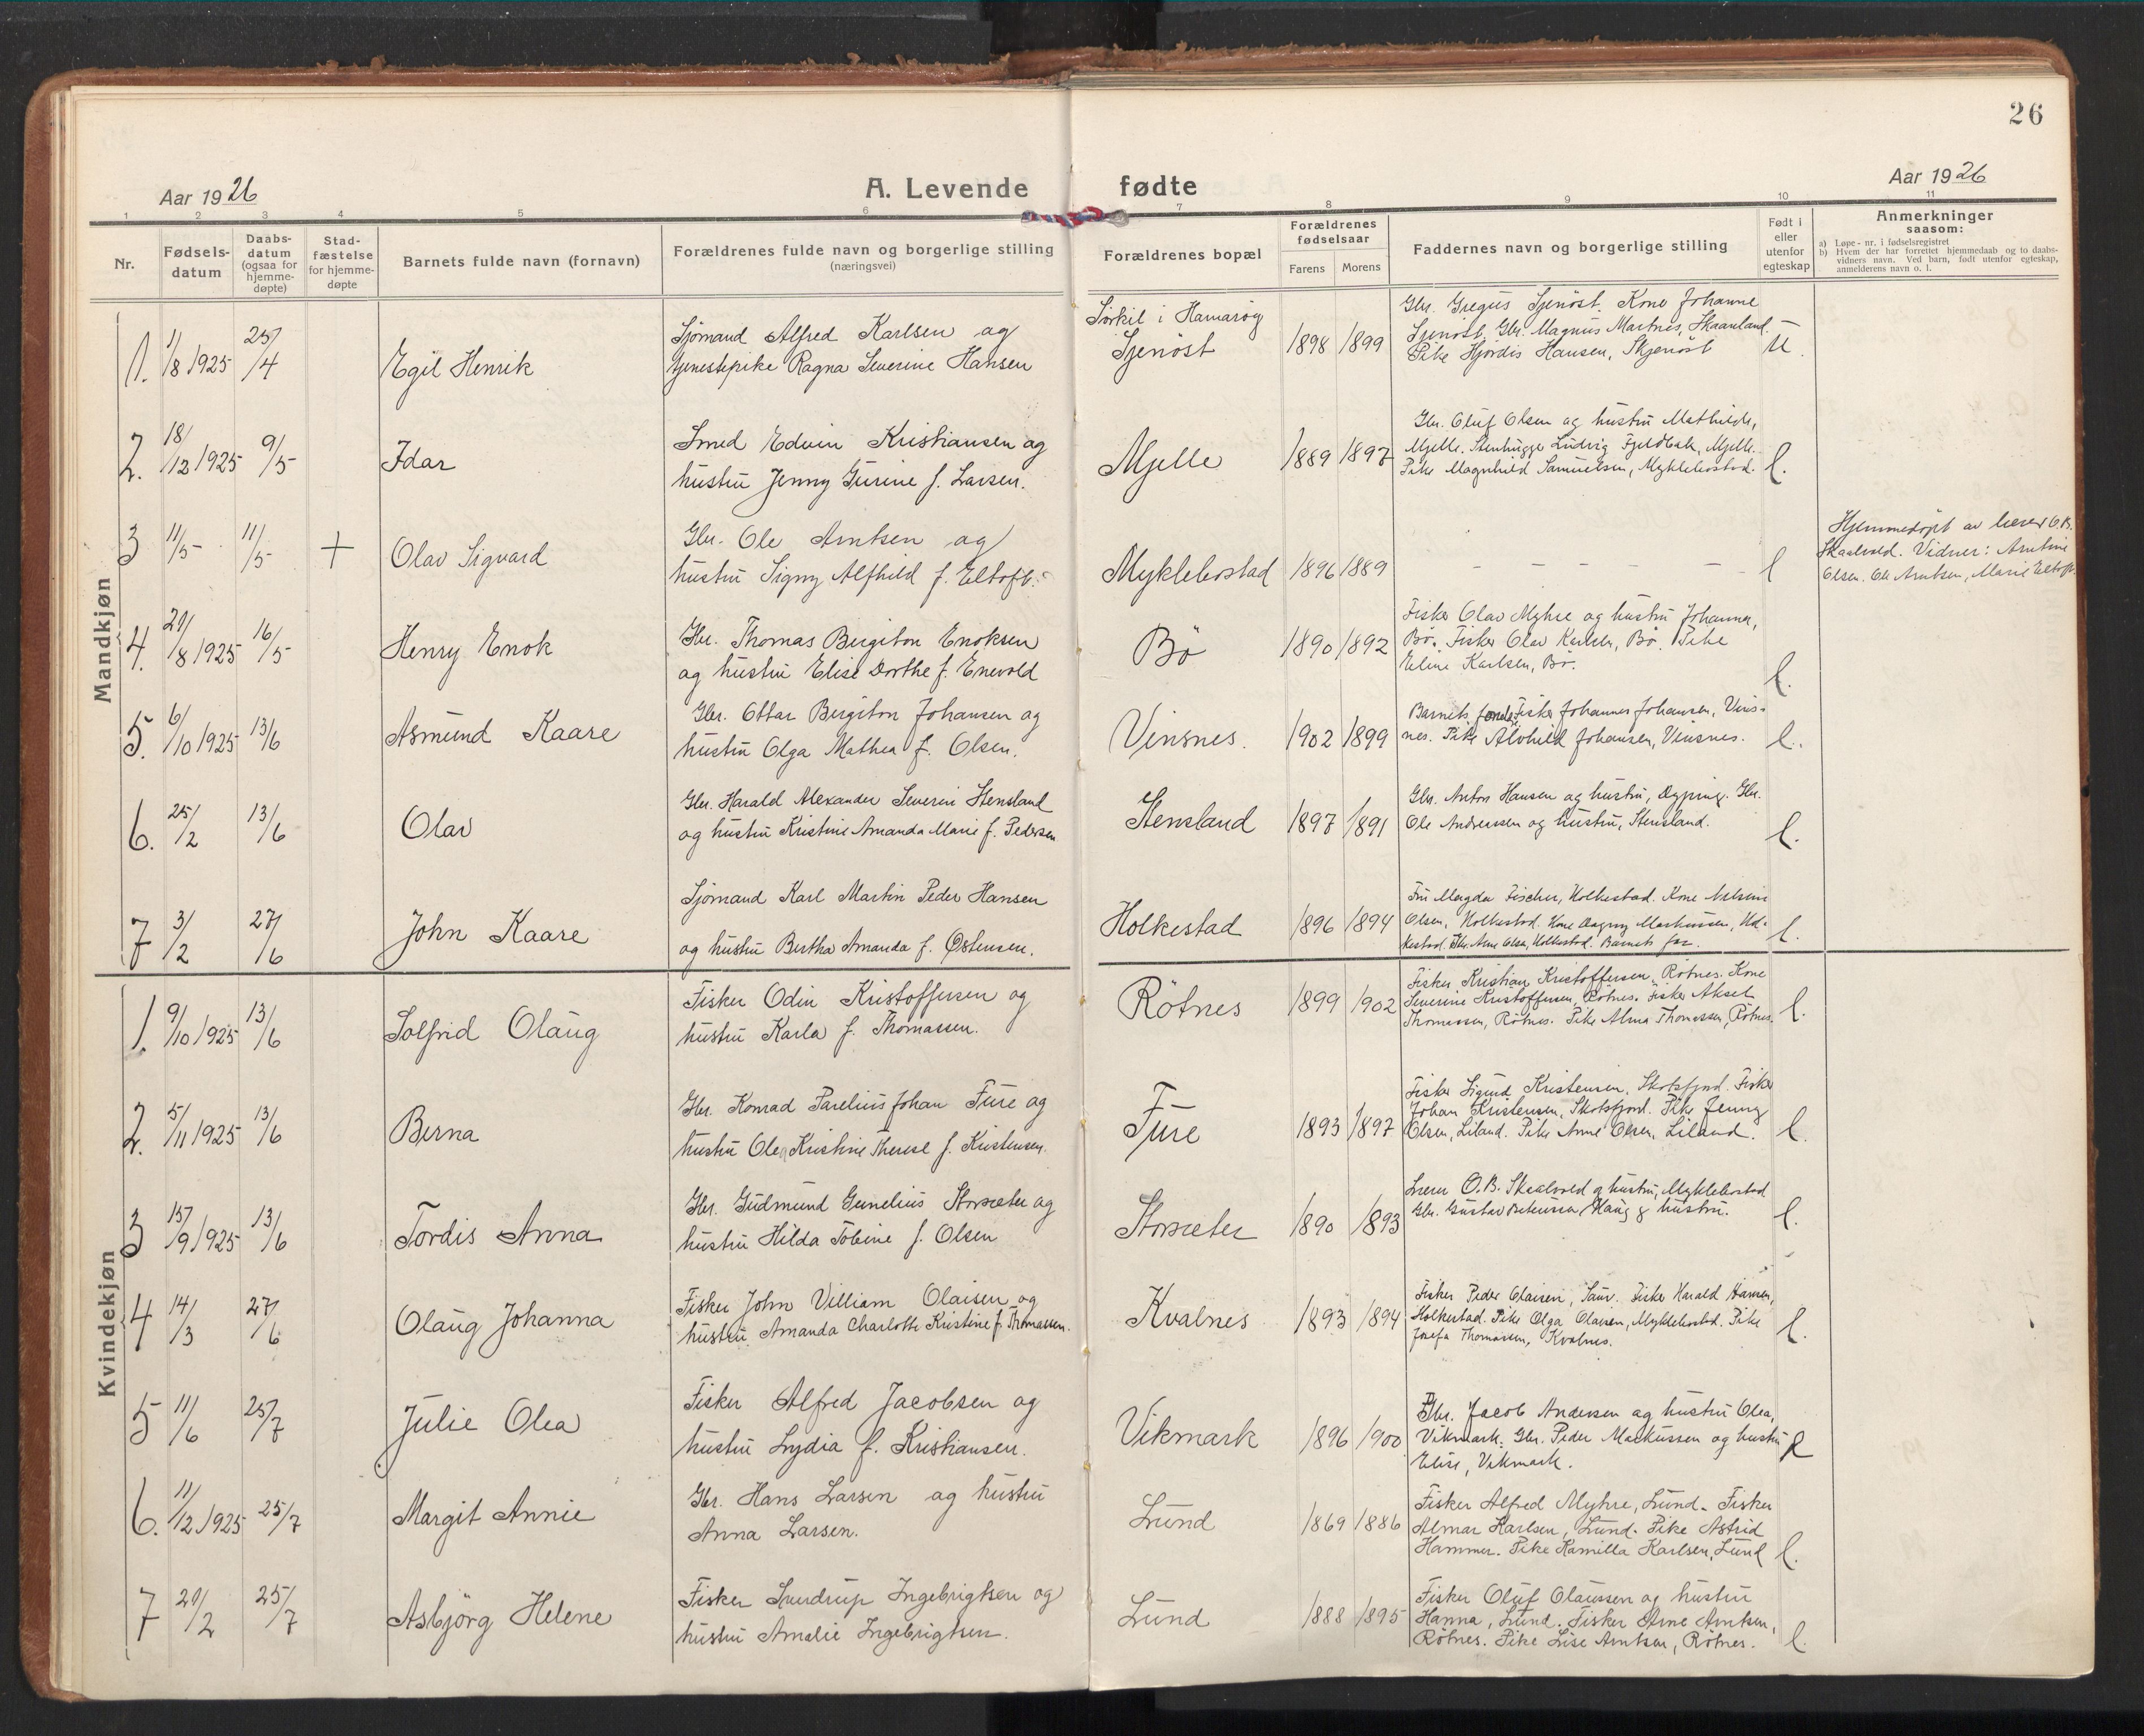 26
Aar 1926
A. Levende fødte
Aar 1926
1 2 3 4 5 6 7 8 9 10 11
Nr.
Fødselsdatum
Daabsdatum (ogsaa for hjemmedøpte)
Stadfæstelse for hjemmedøpte
Barnets fulde navn (fornavn)
Forældrenes fulde navn og borgerlige stilling
(næringsvei)
Forældrenes bopæl
Forældrenes fødselsaar
Farens Morens
Faddernes navn og borgerlige stilling
Født i eller utenfor egteskap
Anmerkninger
saasom:
a) Løpe-nr. i fødselsregistret
b) Hvem der har forrettet hjemmedaab og to daabsvidners navn. Ved barn, født utenfor egteskap, anmelderens navn o. l.
Mandkjøn
1. 1/8 1925 25/4 Egil Henrik
Sjömand Alfred Karlsen og
tjenestepike Ragna Severine Hansen
Sörkil i Hamaröy
Sjenöst 1898 1899
Gbr. Gregus Sjenöst. Kone Johanne
Sjenöst, Gbr. Magnus Martnes, Skaanland.
Pike Hjördis Hansen, Skjenöst U.
2. 18/12 1925 9/5 Idar
Smed Edvin Kristiansen og
hustru Jenny Gurine f. Larsen.
Mjelle 1889 1897
Gbr. Oluf Olsen og hustru Mathilde,
Mjelle. Stenhugger Ludvig Fjeldbak, Mjelle.
Pike Magnhild Samuelsen, Myklebostad. l.
3 11/5 - 11/5 + Olav Sigvard
Gbr. Ole Arntsen og
hustru Signy Alfhild f. Eltoft.
Myklebostad 1896 1889 - - - - - l
Hjemmedöpt av lærer O.B.
Skaalvold. Vidner: Arntine
Olsen. Ole Arntsen, Marie Eltoft.
4. 21/8 1925 16/5 Henry Enok
Gbr. Thomas Bergiton Enoksen
og hustru Elise Dorthe f. Enevold
Bö 1890 1892
Fisker Olav Myhre og hustru Johanna,
Bö. Fisker Olav Karlsen, Bö. Pike
Eline Karlsen, Bö. l.
5. 6/10 1925 13/6 Asmund Kaare
Gbr. Ottar Bergiton Johansen og
hustru Olga Mathea f. Olsen.
Vinsnes. 1902 1899
Barnets Fisker Johannes Johansen, Vinsnes.
Pike Alvhild Johansen, Vinsnes. l.
6. 25/2 13/6 Olav
Gbr. Harald Alexander Severin Stensland
og hustru Kristine Amanda Marie f. Pedersen
Stensland 1897 1891
Gbr. Anton Hansen og hustru, Dyping. Gbr.
Ole Andreassen og hustru, Stensland. l.
7 3/2 27/6 John Kaare
Sjömand Karl Martin Peder Hansen
og hustru Bertha Amanda f. Østensen.
Holkestad 1896 1894
Fru Magda Fischer, Holkestad. Kone
Olsen, Holkestad. Kone Dagny Markussen, Holkestad.
Gbr. Arne Olsen, Holkestad. Barnets far. l.
Kvindekjøn
1. 9/10 1925 13/6 Solfrid Olaug
Fisker Odin Kristoffersen og
hustru Karla f. Thomassen.
Rötnes 1899 1902
Fisker Kristian Kristoffersen, Rötnes. Kone
Severine Kristoffersen, Rötnes. Fisker Aksel
Thomassen, Rötnes. Pike Alma Thomassen, Rötnes. l.
2. 5/11 1925 13/6 Berna
Gbr. Konrad Parelius Johan Fure og
hustru Olea Kristine Therese f. Kristensen.
Fure 1893 1897
Fisker Sigurd Kristensen, Skotsfjord. Fisker
Johan Kristensen, Skotsfjord. Pike Jenny
Olsen, Liland. Pike Anne Olsen, Liland. l.
3 15/9 1925 13/6 Tordis Anna
Gbr. Gudmund Gunelius Storsæter og
hustru Hilda Tobine f. Olsen
Storsæter 1890 1893
Lærer O.B. Skaalvold og hustru, Myklebostad
Gbr. Gustav Haug & hustru. l.
4 14/3 27/6 Olaug Johanna
Fisker John Villiam Olaisen og
hustru Amanda Charlotte Kristine f. Thomassen.
Kvalnes 1893 1894
Fisker Peder Olaisen, Saur. Fisker Harald Hansen,
Holkestad. Pike Olga Olaisen, Myklebostad. Pike
Josefa Thomassen, Kvalnes. l.
5 11/6 25/7 Julie Olea
Fisker Alfred Jacobsen og
hustru Lydia f. Kristiansen.
Vikmark 1896 1900
Gbr. Jacob Andersen og hustru Olea,
Vikmark. Gbr. Peder Markussen og hustru
Elise, Vikmark. l
6. 11/12 1925 25/7 Margit Annie
Gbr. Hans Larsen og hustru
Anna Larsen.
Lund 1869 1886
Fisker Alfred Myhre, Lund. Fisker
Almar Karlsen, Lund. Pike Astrid
Hammer. Pike Kamilla Karlsen, Lund l.
7 21/2 25/7 Asbjörg Helene
Fisker Sverdrup Ingebrigtsen og
hustru Amalie Ingebrigtsen.
Lund 1888 1895
Fisker Oluf Olaussen og hustru
Hanna, Lund. Fisker Arne Arntsen,
Rötnes. Pike Lise Arntsen, Rötnes. l.